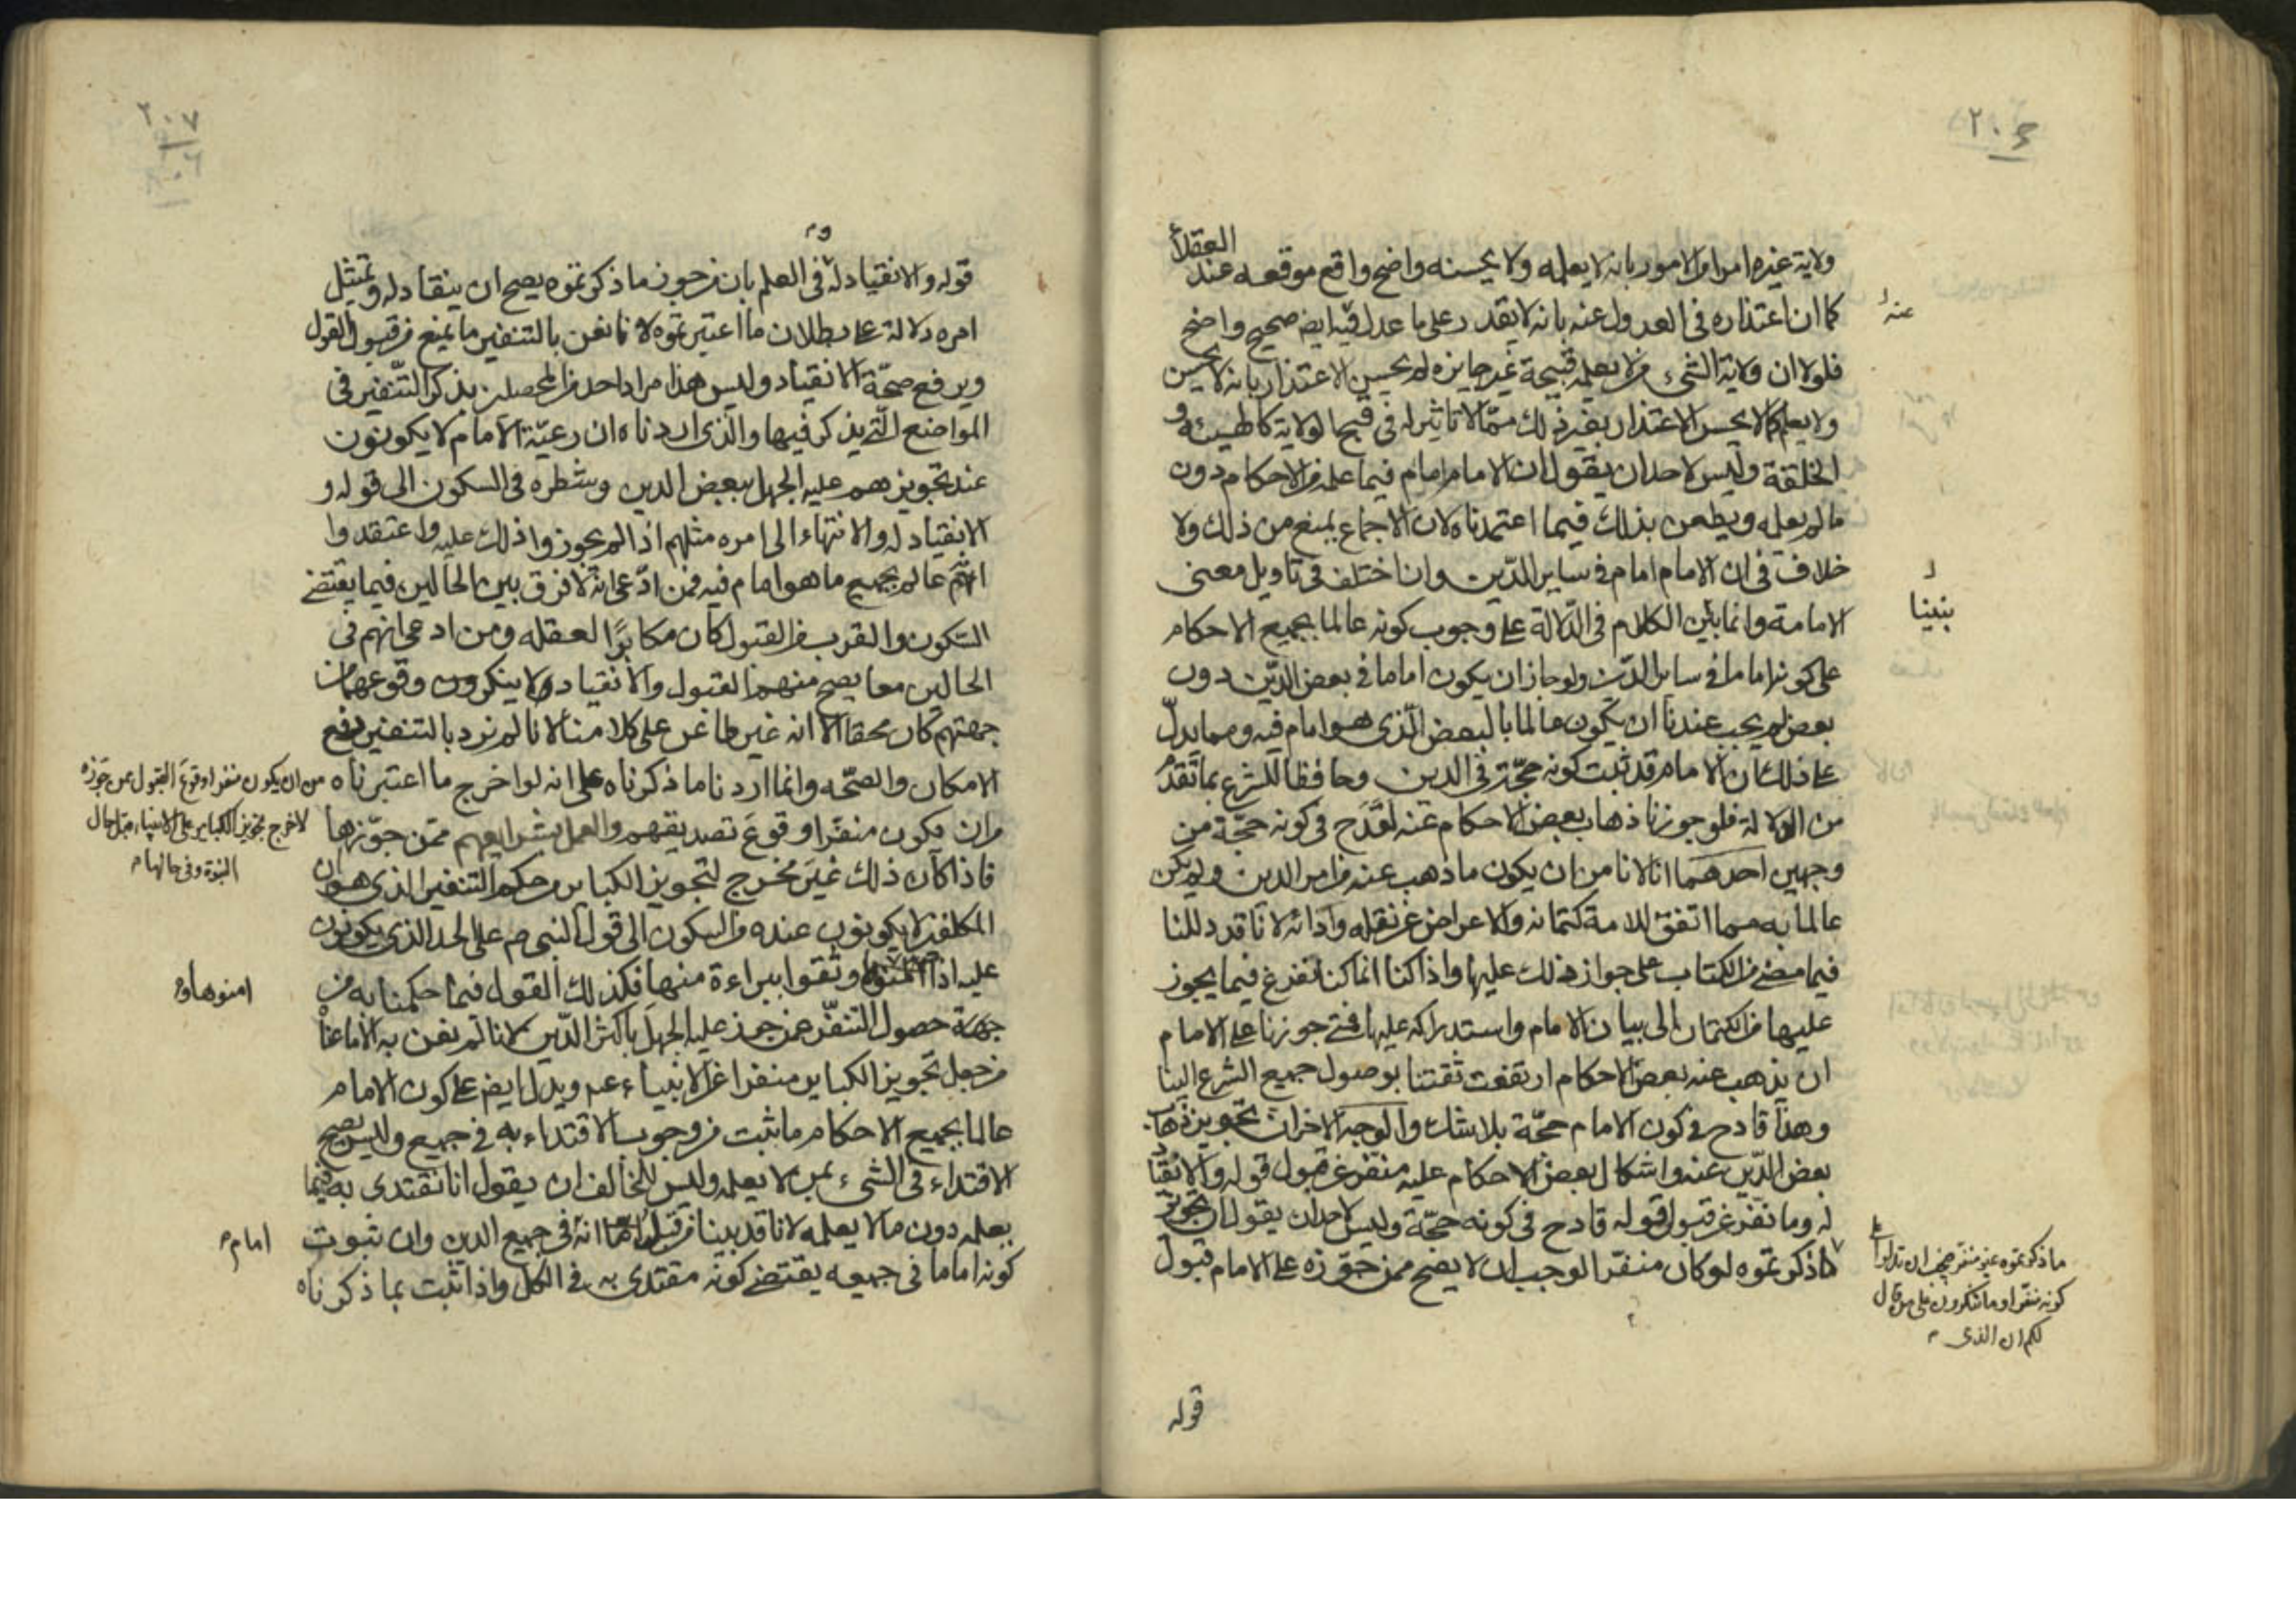 ولاية غيره امرا من الامور بانه لا يعلمه ولا يحسنه واضح واقع موقعه عند العقلاء
كما ان اعتذاره فى العدول عنه بانه لا يقدر على ما عدل فيه ايض صحيح واضح
عنه
فلولا ان ولاية الشىء من لا يعلمه قبيحة غير جايزه لم يحسن الاعتذار بانه لا يحسن
ولا يعلم كما لا يحسن الاعتذار بغير ذلك ممّا لا تاثير له فى قبح الولاية كالهيئة و
الخلقة وليس لاحد ان يقول ان الامام امام فيما علمه من الاحكام دون
ما لم يعلمه ويطعن بذلك فيما اعتمدناه لان الاجماع يمنع من ذلك ولا
خلاف فى ان الامام امام فى ساير الدّين وان اختلف فى تاويل معنى
بنينا
الامامة وانما الكلام فى الدّلالة على وجوب كونه عالما بجميع الاحكام
على كونه اماما فى ساير الدّين ولو جاز ان يكون اماما فى بعض الدّين دون
بعض لم يجب عندنا ان يكون عالما بالبعض الّذى هو امام فيه ومما يدلّ
على ذلك ان الامام قد ثبت كونه حجّة فى الدين وحافظا للشرع بما تقدّم
من الدلالة فلو جوزنا ذهاب بعض الاحكام عنه لقدح فى كونه حجّة من
وجهين احدهما انا لا نامن ان يكون ما ذهب عنه من امر الدين ولم يكن
عالما به مما اتفق للامة كتمانه والاعراض عن نقله وادائه لانّا قد دللنا
فيما مضى من الكتاب على جواز ذلك عليها واذا كنا انما كنا نفزع فيما يجوز
عليها من الكتمان الى بيان الامام واستدراكه عليها فمتى جوزنا على الامام
ان يذهب عنه بعض الاحكام ارتفعت ثقتنا بوصول جميع الشرع الينا
وهذا قادح فى كون الامام حجّة بلا شك والوجه الاخر ان تجويز ذهاب
بعض الدّين عنه واشكال بعض الاحكام عليه منفر عن قبول قوله والانقياد
له وما نفر عن قبول قوله قادح فى كونه حجّة وليس لاحد ان يقول ان تجويز
ما ذكرتموه لو كان منفرا لوجب ان لا يصح ممن جوّزه على الامام قبول
ما ذكرتموه غير منفر فيجب ان تدلوا على
كونه منفرا وما تنكرون على من قال
لكم ان الذى
قوله
٢٠٧
قوله والانقياد له فى العلم بان من جوز ما ذكرتموه يصح ان ينقاد له ويمتثل
امره دلالة على بطلان ما اعتبرتموه لانا نعن بالتنفير ما يمنع من قبول القول
ويرفع صحّة الانقياد وليس هذا مراد احد من المحصلين بذكر التّنفير فى
المواضع الّتى يذكر فيها والّذى اردناه ان رعيّة الامام لا يكونون
عند تجويزهم عليه الجهل ببعض الدين وشطره فى السكون الى قوله و
الانقياد له والانتهاء الى امره مثلهم اذا لم يجوزوا ذلك عليه واعتقدوا
انّه عالم بجميع ما هو امام فيه فمن ادّعى انّه لا فرق بين الحالين فيما يقتضى
السّكون والقرب من القبول كان مكابرًا لعقله ومن ادعى انهم فى
الحالين معا يصح منهم القبول والانقياد ولا ينكرون وقوعهما من
جهتهم كان محقا الّا انه غير طاعن على كلامنا لانا لم نرد بالتنفير رفع
الامكان والصّحّه وانما اردنا ما ذكرناه على انه لو اخرج ما اعتبرناه
من ان يكون منفرا وقوع القبول ممن جوّزه
لاخرج تجويز الكباير على الانبياء قبل حال
النبوّة وفى حالها
من ان يكون منفّرا وقوع تصديقهم والعمل بشرايعهم ممّن جوّزها
فاذا كان ذلك غير مُخرج لتجويز الكباير من حكم التنفير الذى هو ان
المكلفين لا يكونون عنده من السكون الى قول النبى ص على الحد الذى يكونون
عليه اذا وثقوا ببراءة منها فكذلك القول فيما حكمنا به من
امنوها و
جهة حصول التنفّر عمن جوز عليه الجهل باكثر الدّين لانا لم نعن به الا ما عناه
من جعل تجويز الكباير منفرا عن الانبياء ع م ويدل ايض على كون الامام
عالما بجميع الاحكام ما ثبت من وجوب الاقتداء به فى جميع وليس يصح
الاقتداء فى الشىء بمن لا يعلمه وليس للمخالف ان يقول انا نقتدى به فيما
يعلمه دون ما لا يعلمه لانا قد بينا من قبل انّه فى جميع الدين وان ثبوت
امام
كونه اماما فى جميعه يقتضى كونه مقتدى به فى الكل واذا ثبت بما ذكرناه